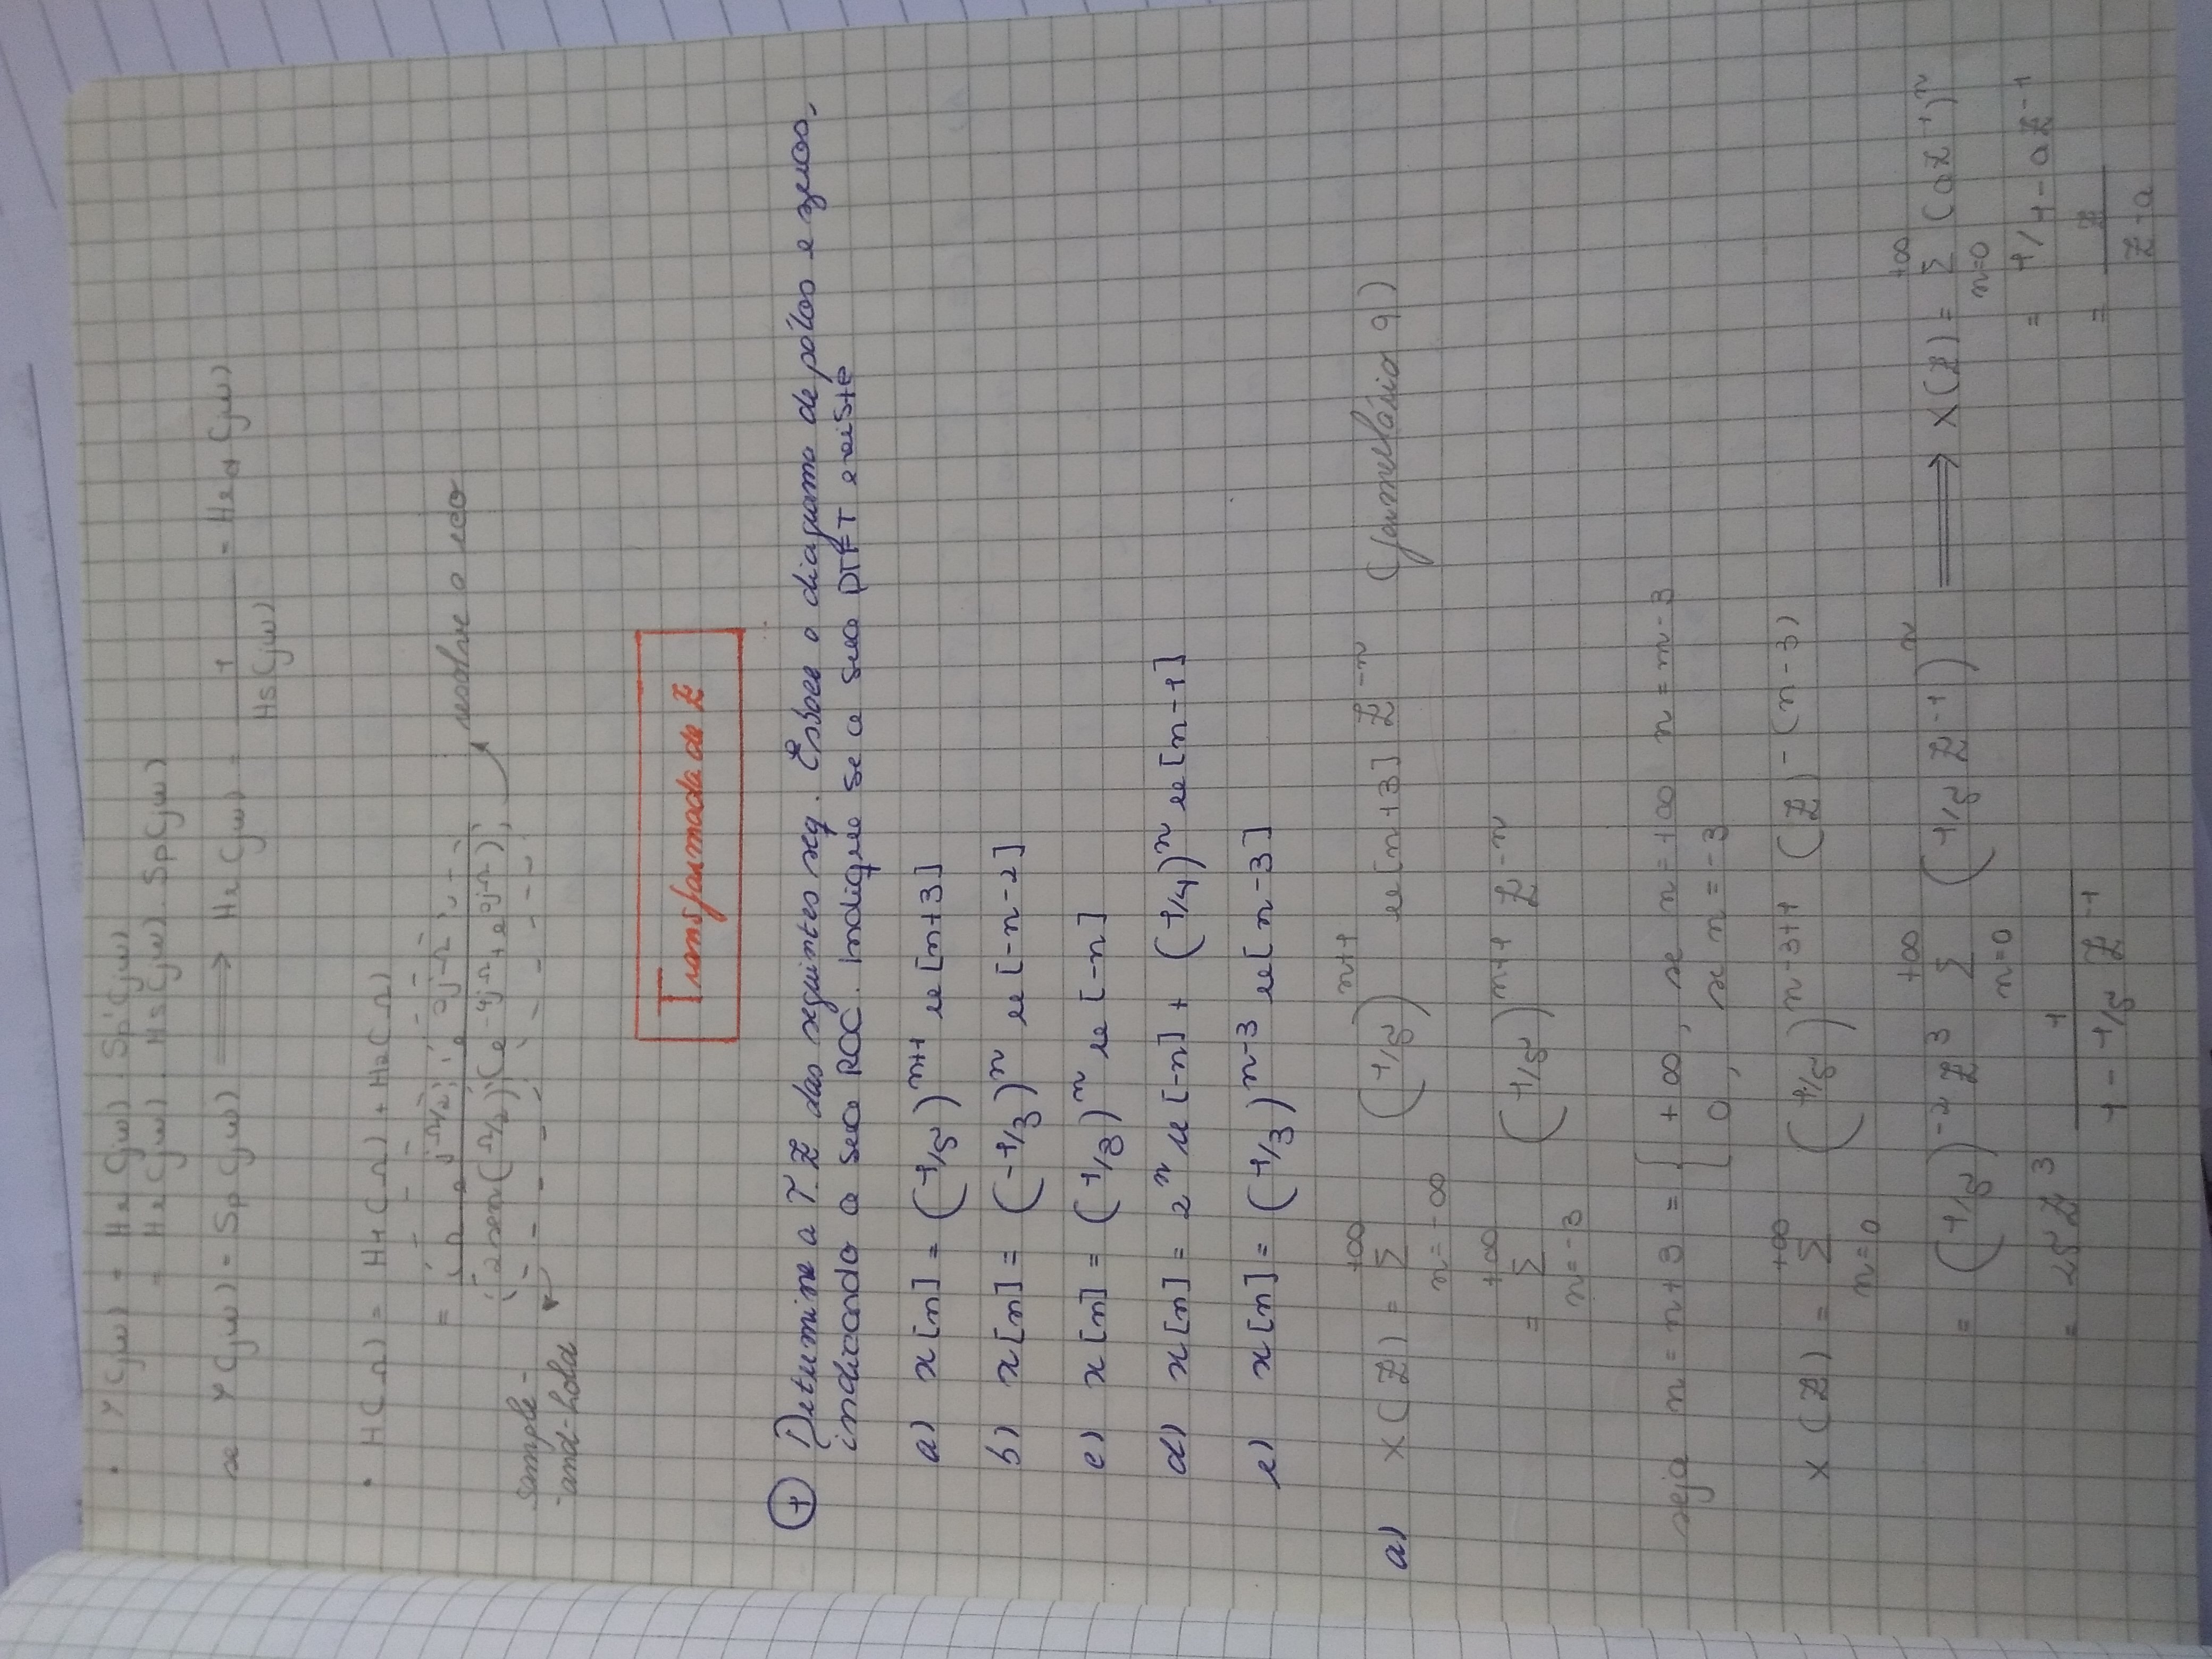 • Y(jω) = Hr(jω) . Sp'(jω)
= Hr(jω) . Hs(jω) . Sp(jω)
se Y(jω) = Sp(jω) ⟹ Hr(jω) = 1 / Hs(jω) = Hr1(jω)
• H(Ω) = H1(Ω) + H2(Ω)
= Ω e^(jΩ/2) e^(0jΩ) / 2 sen(Ω/2) (e^(-4jΩ) + e^(0jΩ)) resolve o eco
sample-
-and-hold
Transformada de Z
1 Determine a T.Z das seguintes seq. Esboce o diagrama de pólos e zeros,
indicando a sua ROC. Indique se a sua DTFT existe
a) x[n] = (1/5)^(n+1) u[n+3]
b) x[n] = (-1/3)^n u[-n-2]
c) x[n] = (1/3)^n u[-n]
d) x[n] = 2^n u[-n] + (1/4)^n u[n-1]
e) x[n] = (1/3)^(n-3) u[n-3]
a) X(Z) = Σ_(n=-∞)^(+∞) (1/5)^(n+1) u[n+3] Z^(-n) (formulário 9)
= Σ_(n=-3)^(+∞) (1/5)^(n+1) Z^(-n)
seja n = n+3 = { +∞, se n=+∞ n = m-3
0, se n = -3
X(Z) = Σ_(n=0)^(+∞) (1/5)^(n-3+1) (Z)^(-(n-3))
= (1/5)^(-2) Z^3 Σ_(n=0)^(+∞) (1/5 Z^(-1))^n ⟹ X(Z) = Σ_(n=0)^(+∞) (aZ^(-1))^n
= 1/1-aZ^(-1)
= 25Z^3 1 / 1 - 1/5 Z^(-1)
= Z / Z-a